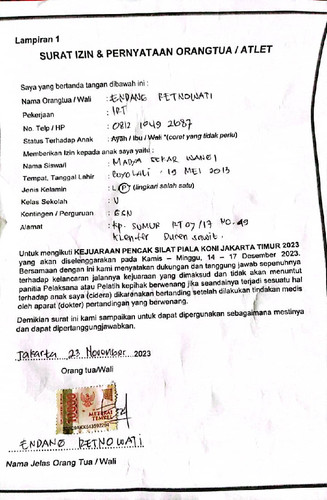 Lampiran 1
SURAT IZIN & PERNYATAAN ORANGTUA / ATLET
Saya yang bertanda tangan dibawah ini :
Nama Orangtua / Wali : ENDANG RETNOWATI
Pekerjaan : IRT
No. Telp / HP : 0812 1049 2687
Status Terhadap Anak : Ayah / Ibu / Wali *(coret yang tidak perlu)
Memberikan Izin kepada anak saya yaitu :
Nama Siswa/i : MADYA SEKAR WANGI
Tempat, Tanggal Lahir : Boyolali, 19 MEI 2013
Jenis Kelamin : L / P (lingkari salah satu)
Kelas Sekolah : V
Kontingen / Perguruan :
Alamat : Kp. SUMUR RT 07/17 NO. 49
Klender Duren Sawit
Untuk mengikuti KEJUARAAN PENCAK SILAT PIALA KONI JAKARTA TIMUR 2023
yang akan diselenggarakan pada Kamis – Minggu, 14 – 17 Desember 2023.
Bersamaan dengan ini kami menyatakan dukungan dan tanggung jawab sepenuhnya
terhadap kelancaran jalannya kejuaraan yang dimaksud dan tidak akan menuntut
panitia Pelaksana atau Pelatih kepihak berwenang jika seandainya terjadi sesuatu hal
terhadap anak saya (cidera) dikarenakan bertanding setelah dilakukan tindakan medis
oleh aparat (dokter) pertandingan yang berwenang.
Demikian surat ini kami sampaikan untuk dapat dipergunakan sebagaimana mestinya
dan dapat dipertanggungjawabkan.
Jakarta, 23 November 2023
Orang tua/Wali
10000
METERAI
TEMPEL
ENDANG RETNOWATI
Nama Jelas Orang Tua / Wali